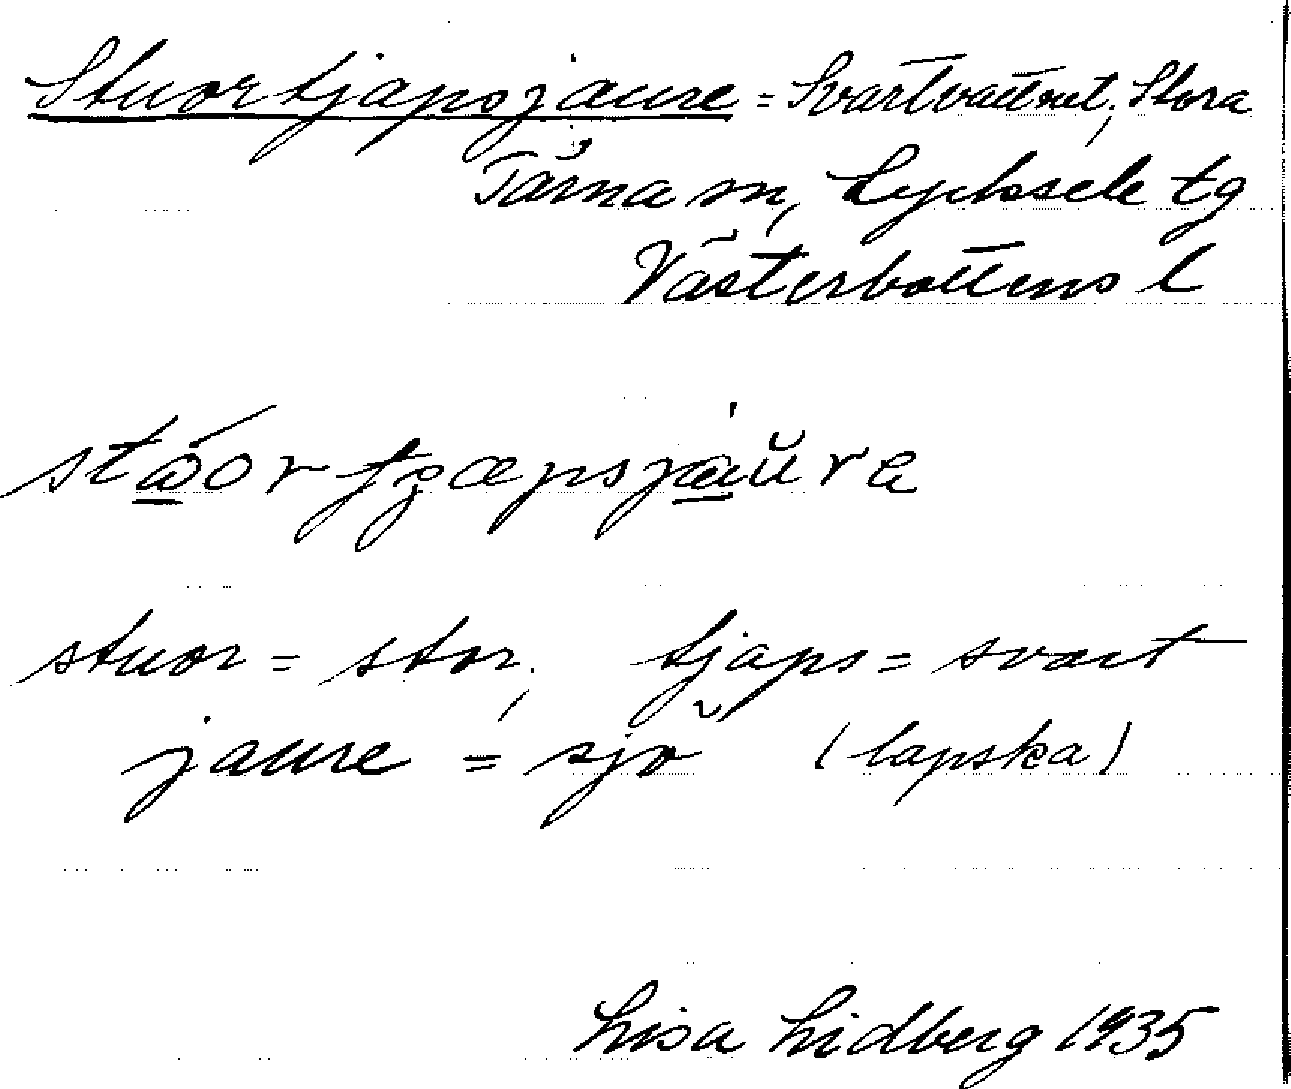 Stuortjapsjaure = Svartvattnet, Stora
Tärna sn, Lycksele tg
Västerbottens l
stuor = stor, tjaps = svart
jaure = sjö (lapska)
Lisa Lidberg 1935